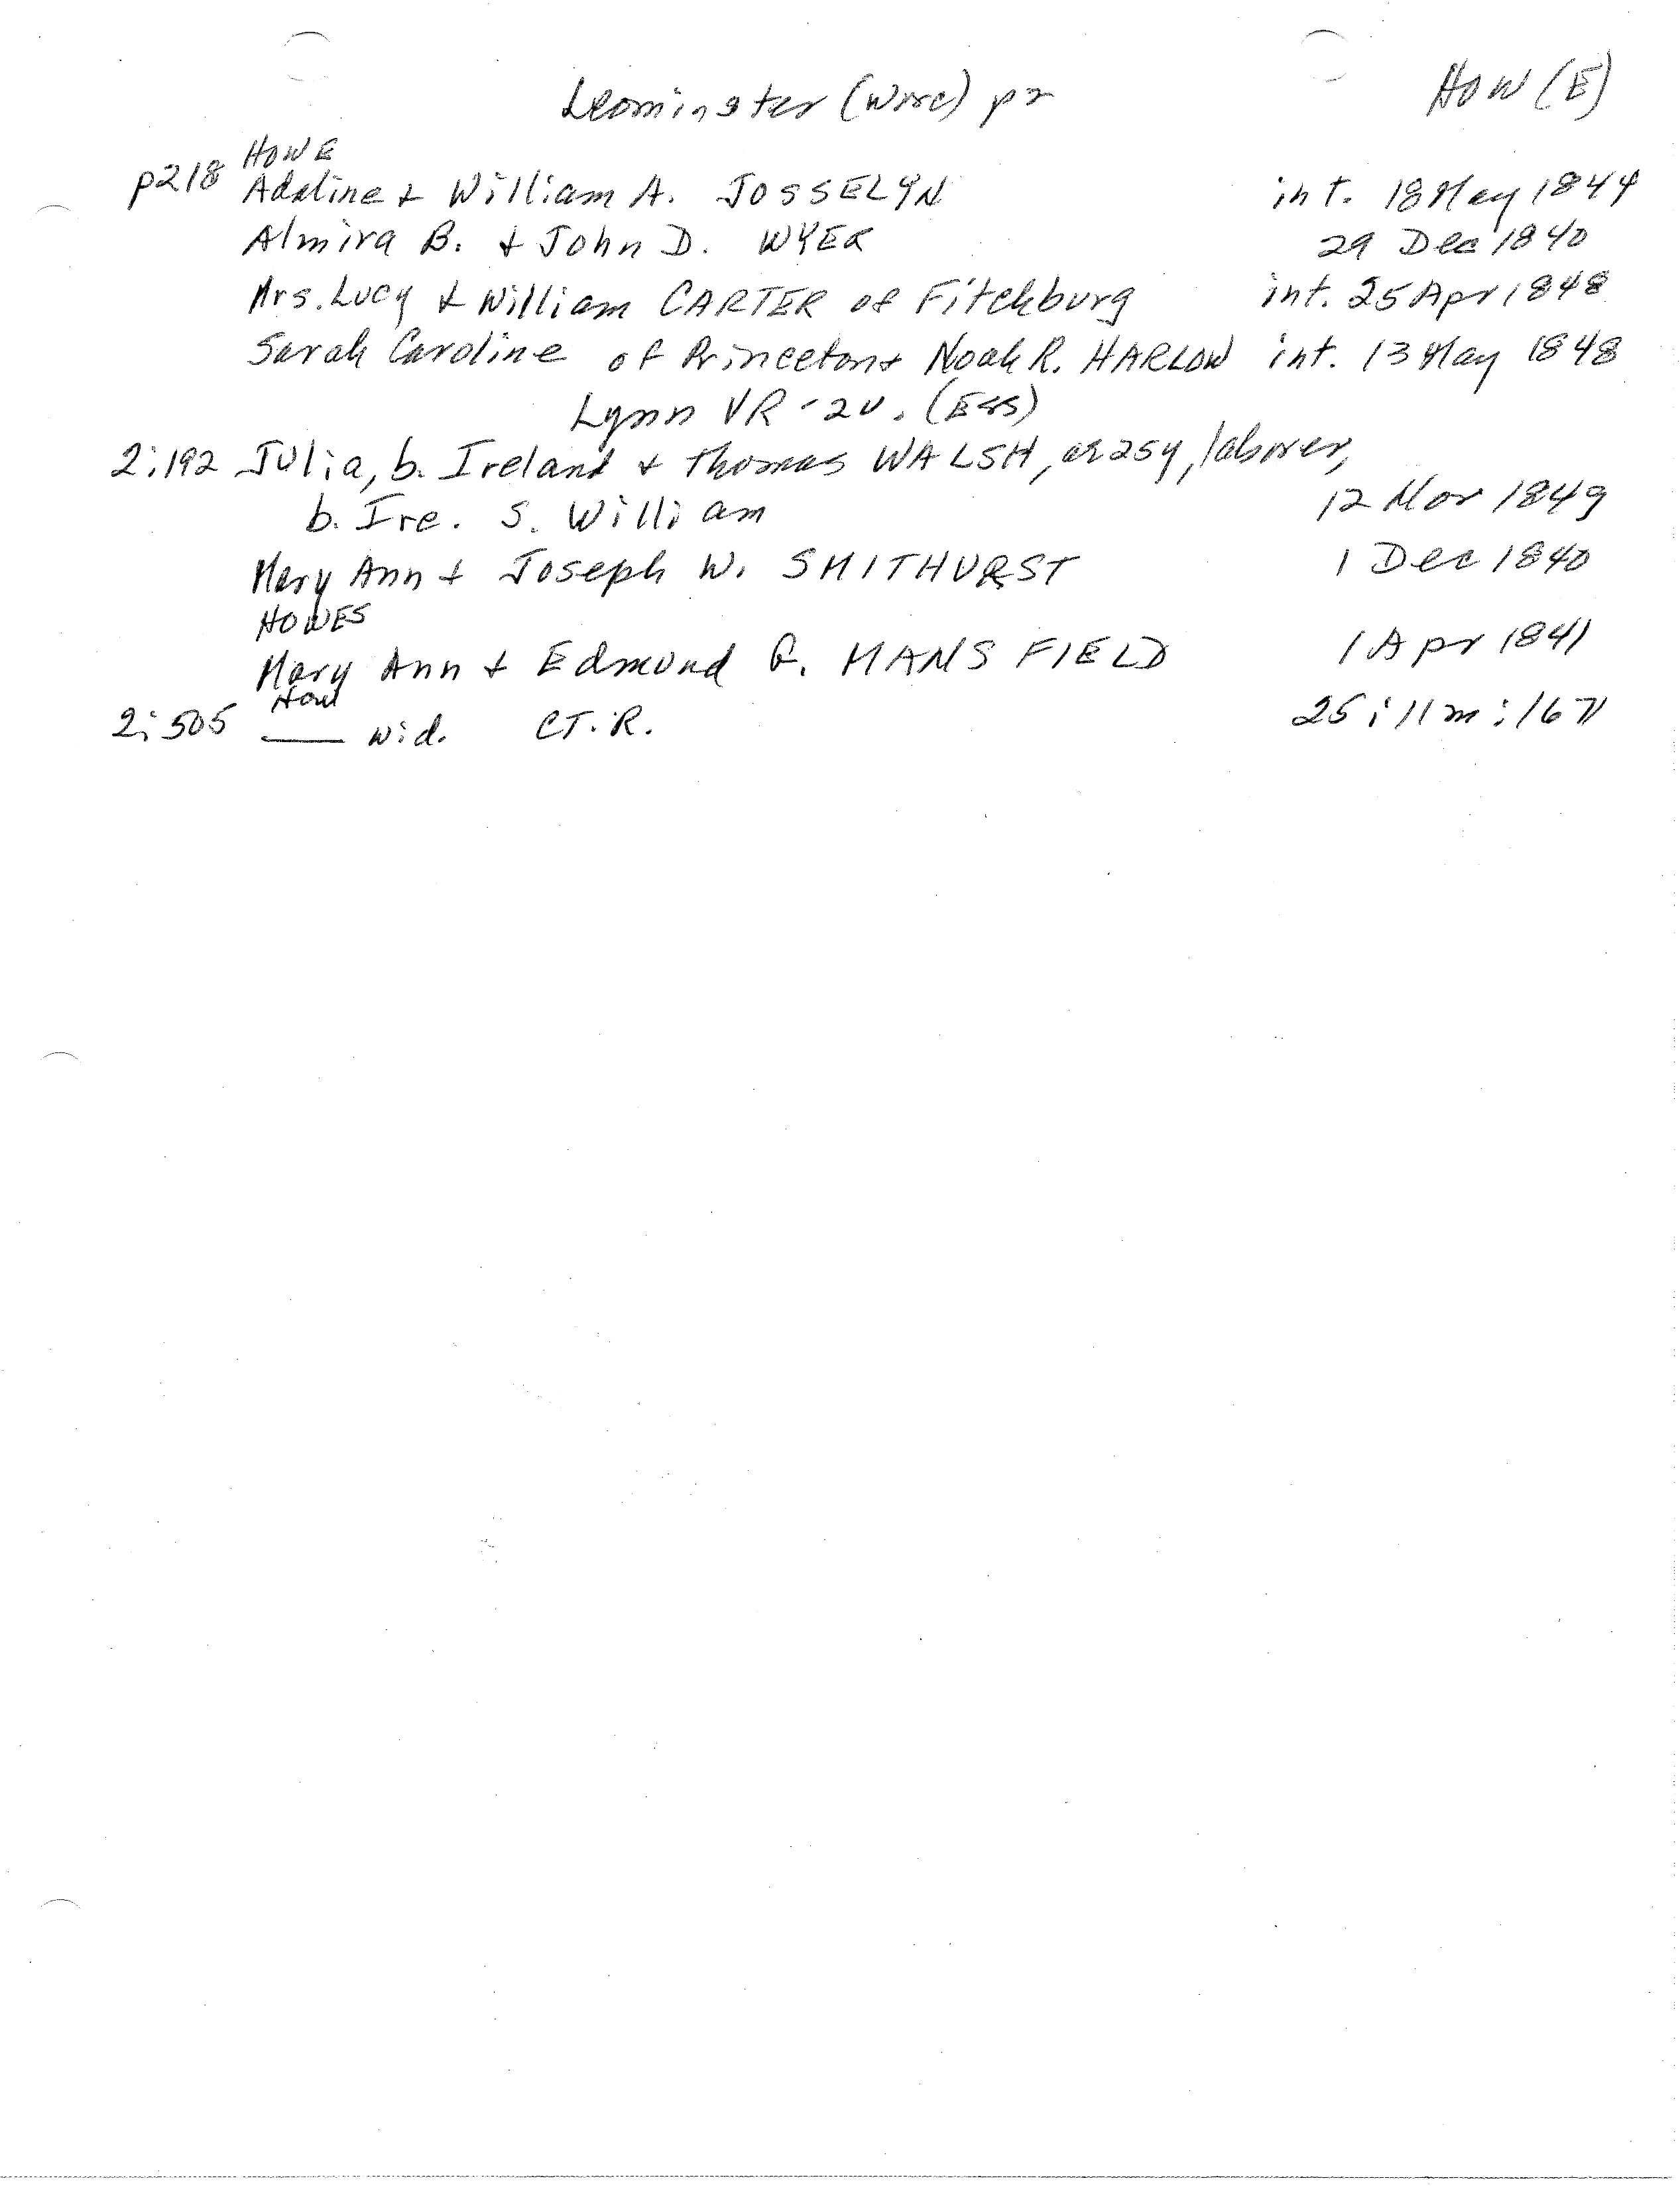 Leominster (Worc) p2 HOW (E)
HOWE
p218 Adaline + William A. JOSSELYN int. 18 May 1844
Almira B. + John D. WYER 29 Dec 1840
Mrs. Lucy + William CARTER of Fitchburg int. 25 Apr 1848
Sarah Caroline of Princeton + Noah R. HARLOW int. 13 May 1848
Lynn VR - 2v. (Ess)
2:192 Julia, b. Ireland + Thomas WALSH, ae 25y, laborer,
b. Ire. s. William 12 Nov 1849
Mary Ann + Joseph W. SMITHURST 1 Dec 1840
HOWES
Mary Ann + Edmund G. MANSFIELD 1 Apr 1841
How
2:505 ___ wid. CT.R. 25:11m:1671